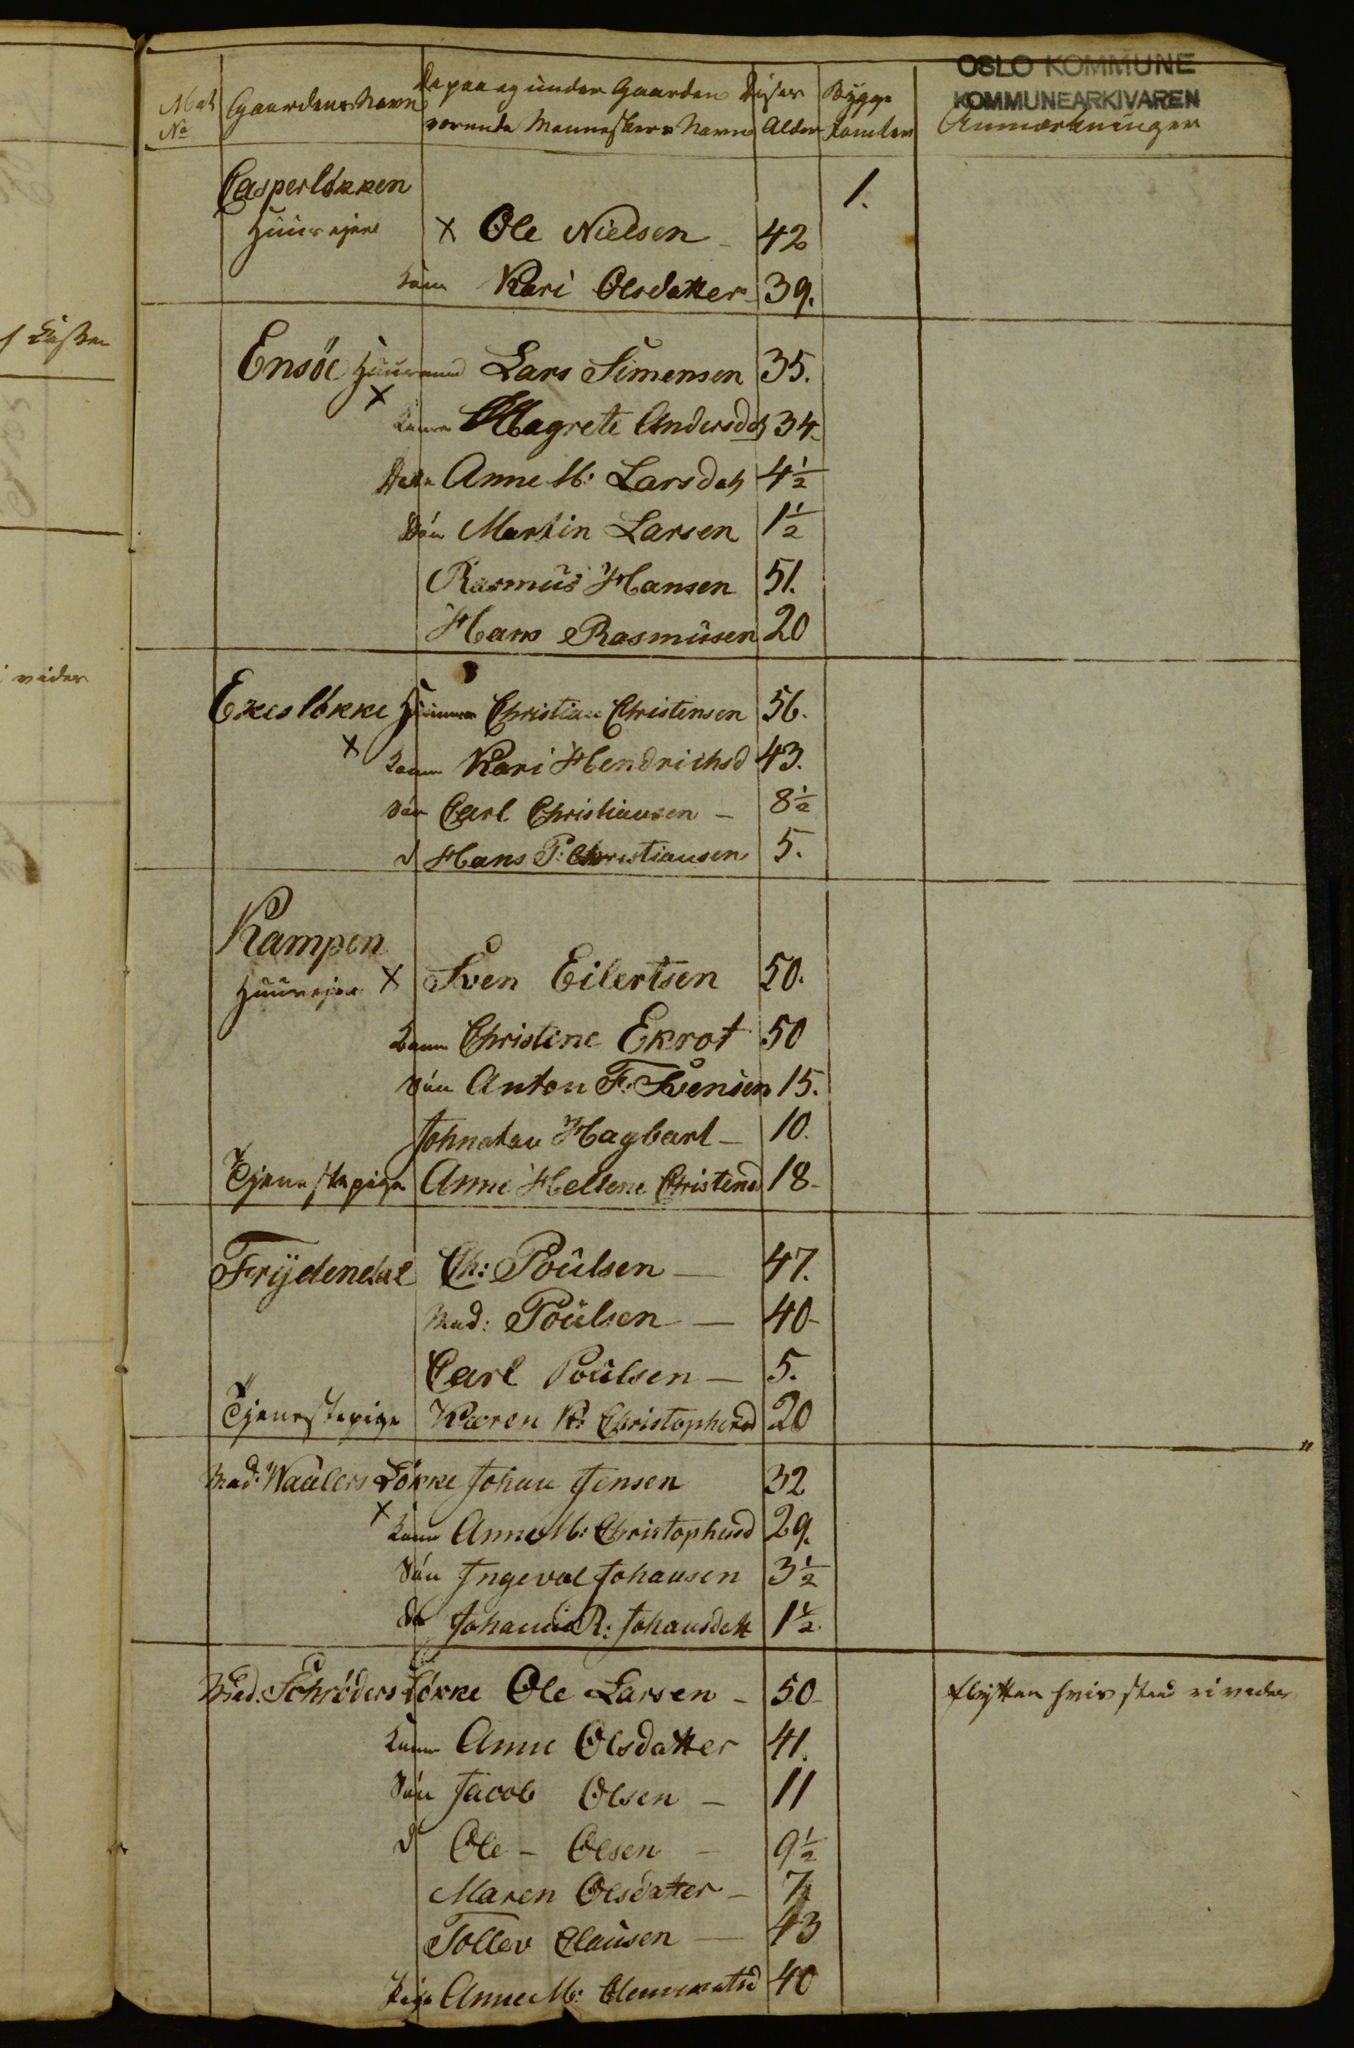 OSLO KOMMUNE
KOMMUNEARKIVAREN
Mat No Gaardens Navn De paa og under Gaarden værende Menneskers Navne Disses Alder Bygge Anmærkninger
Casperløkken 1.
Huusejer x Ole Nielsen - 42
Kone Kari Olsdatter 39.
Ensøe Huusmand Lars Simensen 35.
x Kone Magrete Andersdat 34-
Datr Anne M: Larsdat 4½
Søn Martin Larsen 1½
Rasmus Hansen 51.
Hans Rasmusen 20
Ekesløkke Christian Christensen 56.
x Kone Kari Hendrichsd 43.
Søn Carl Christiansen - 8½
d Hans P: Christiansen 5.
Kampen
Huusejer x Sven Eilertsen 50.
Kone Christine Ekrot 50
Søn Anton F. Svensen 15.
Johnatan Hagbart - 10.
Tjenestepige Anne Hellene Christensd 18-
Frydendal Ch: Poulsen - 47.
Mad: Poulsen - 40-
Carl Poulsen - 5.
Tjenestepige Karen K: Christophersd 20
Mad: Waalers Løkke Johan Jensen 32
x Kone Anne M: Christophersd 29.
Søn Ingeval Johansen 3½
Johanne R: Johansdatt 1½
Mad. Schrøders Løkke Ole Larsen - 50- flytter hvis sted vi veder
Kone Anne Olsdatter 41.
Søn Jacob Olsen - 11
d Ole - Olsen - 9½
Maren Olsdatter - 7
Tollev Clausen - 43
Pige Anne M: 40
s Løkken
i veder